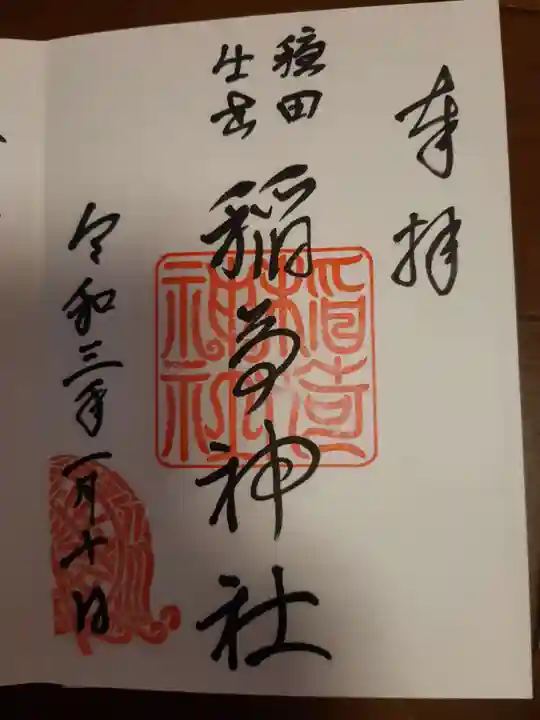 奉拝
稲荷神社
令和三年一月十日
稲荷
神社